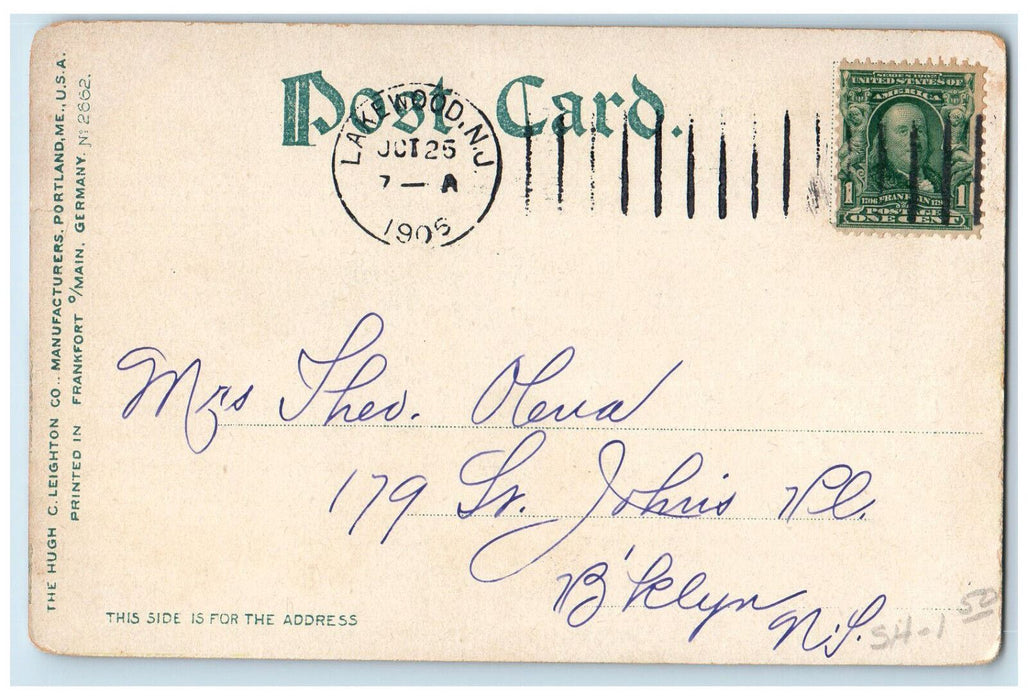 Post Card.
THE HUGH C. LEIGHTON CO., MANUFACTURERS, PORTLAND, ME., U.S.A.
PRINTED IN FRANKFORT o/MAIN, GERMANY. No 2662.
LAKEWOOD, N.J.
OCT 25
7 — A
1906
SERIES 1902
UNITED STATES OF
AMERICA
1 FRANKLIN 1
POSTAGE
ONE CENT
Mrs Theo.
179 St. Johns Pl.
B'klyn N.Y.
THIS SIDE IS FOR THE ADDRESS
SH-1 50